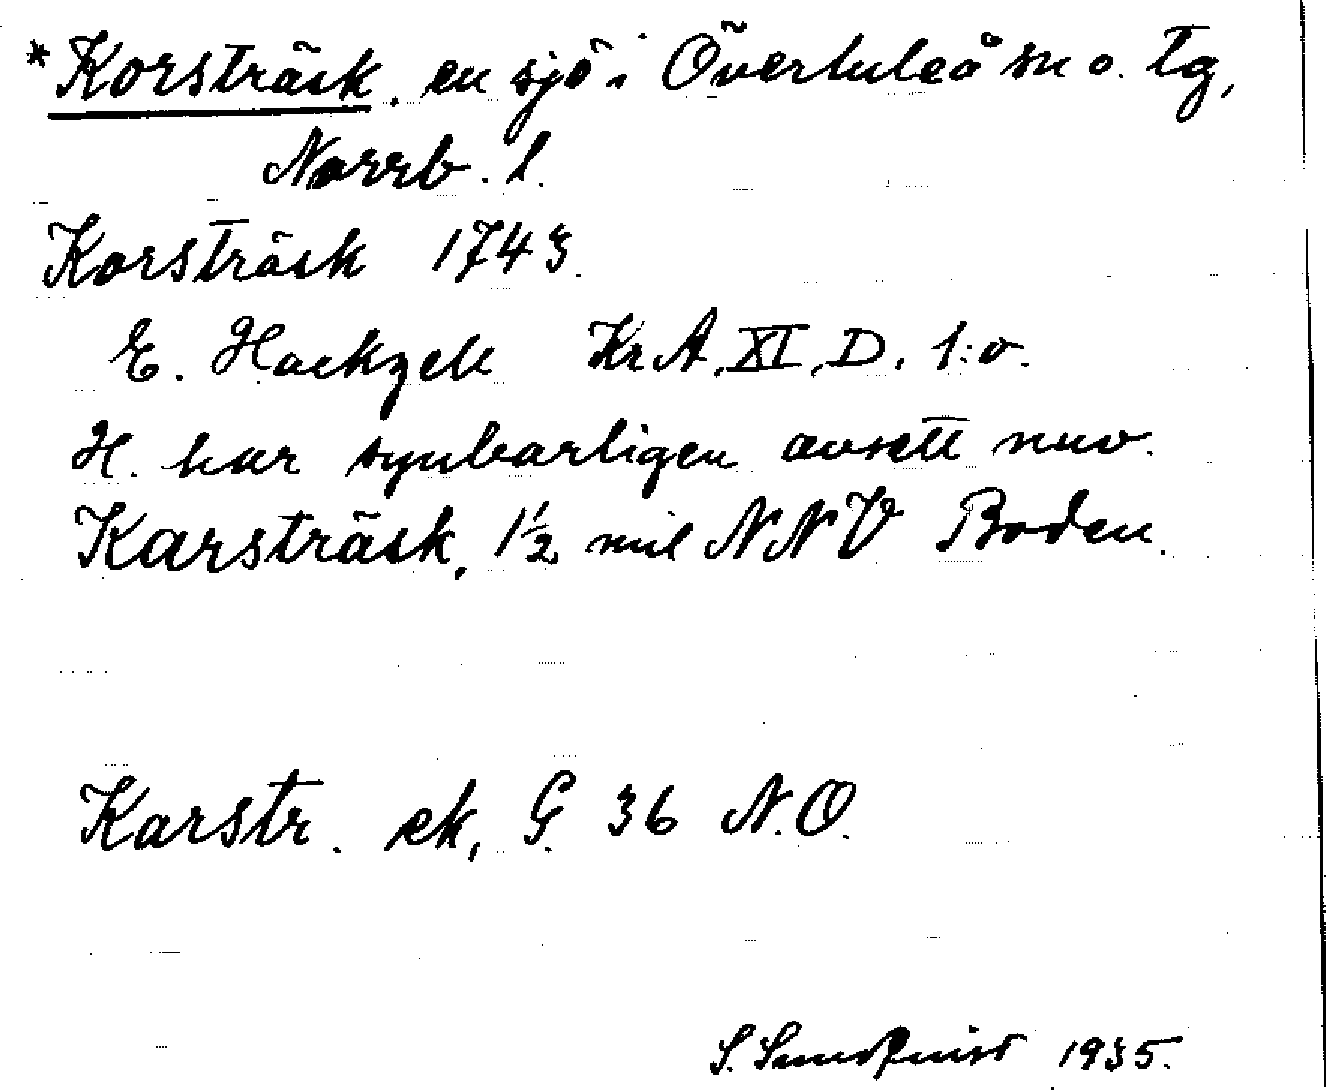 *Korsträsk, en sjö i Överluleå sn o. tg,
Norrb. l.
Korsträsk 1743.
E. Hackzell KrA, XI, D, 1:o.
H. har synbarligen avsett nuv.
Karsträsk, 1½ mil NNV Boden.
Karstr. ek, G. 36 N.O.
S. Sundquist 1935.